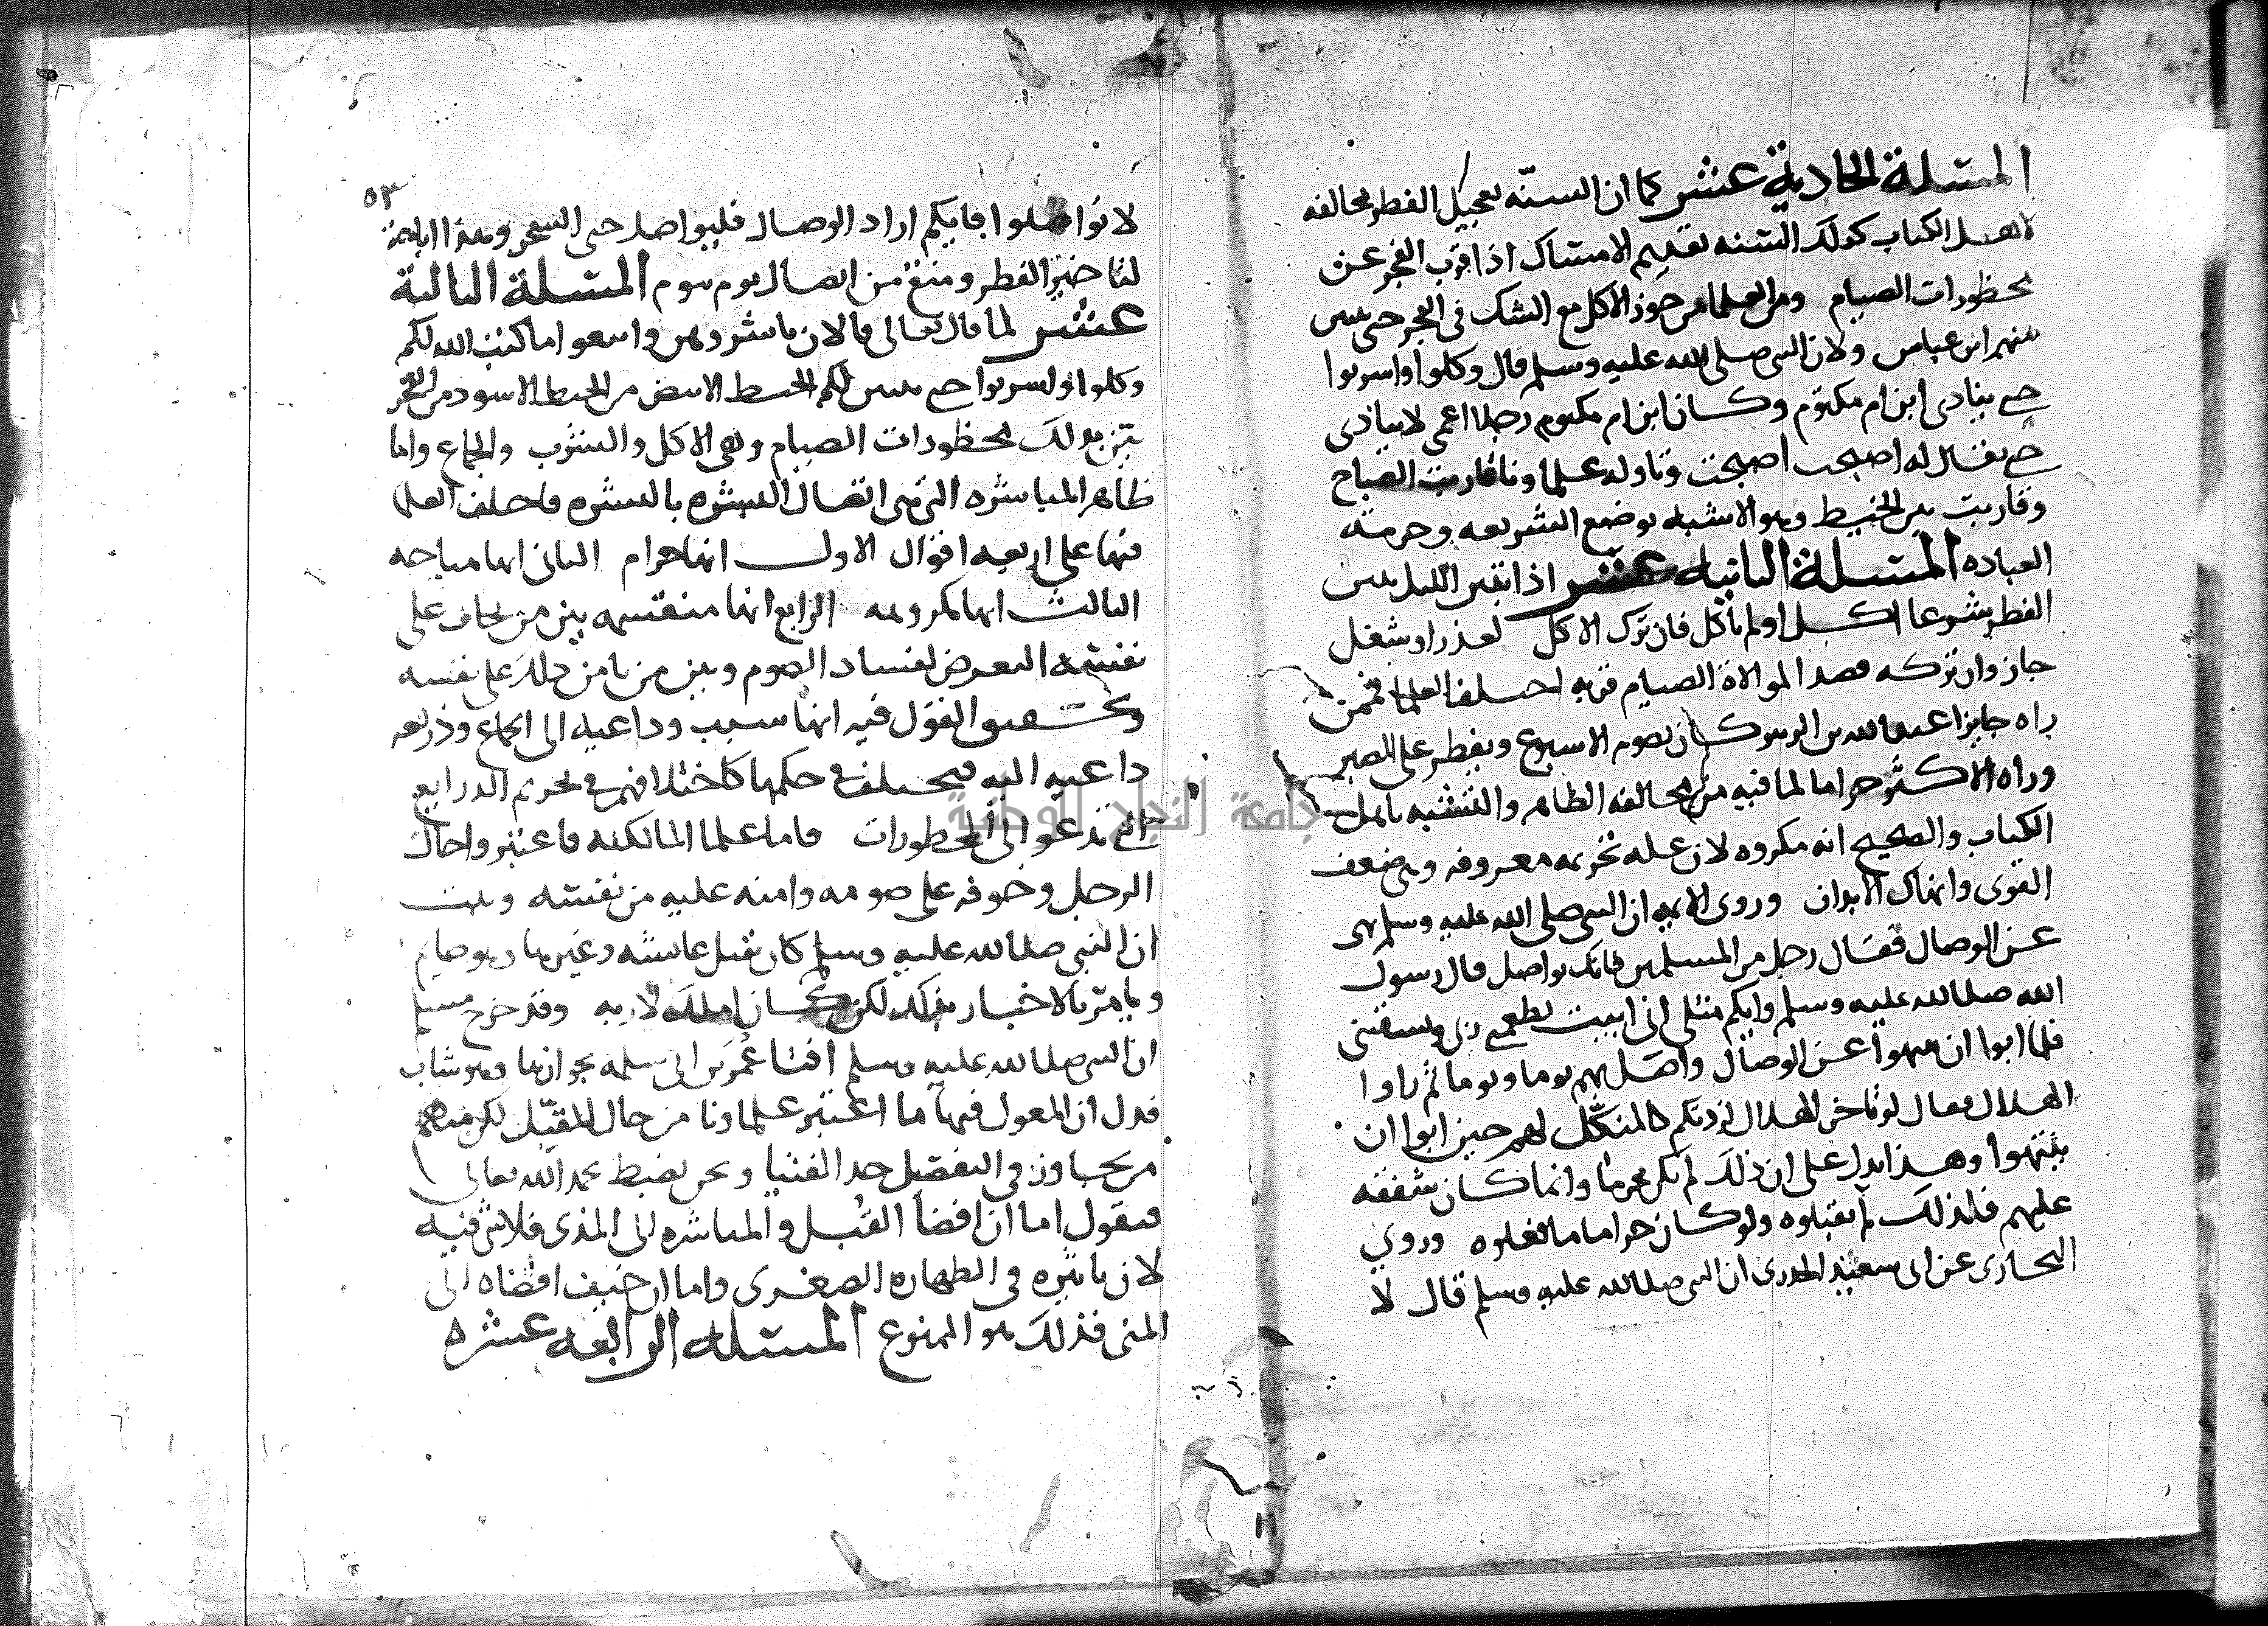 المسئلة الحادية عشر كما ان السنه تعجيل الفطر مخالفه
لاهل الكتاب كذلك السنه تقديم الامساك اذا قرب الفجر عن
محظورات الصيام ومن العلما من جوز الاكل مع الشك في الفجر حتى يتبين
منهم ابن عباس ولان النبي صلى الله عليه وسلم قال وكلوا واشربوا
حتى ينادي ابن ام مكتوم وكان ابن ام مكتوم رجلا اعمى لا ينادي
حتى يقال له اصبحت اصبحت وتاوله علماونا قاربت الصباح
وقاربت تبين الخيط وهو الاشبه بوضع الشريعه وحرمة
العباده المسئلة الثانيه عشر اذا تبين الليل سن
الفطر شرعا اكل او لم ياكل فان ترك الاكل لعذر او شغل
جاز وان تركه قصد الموالاة الصيام قربه اختلف العلما فممن
راه جايزا عبد الله بن الزبير كان يصوم الاسبوع ويفطر على الصبر
وراه الاكثر حراما لما فيه من مخالفه الظاهر والتشبه باهل
الكتاب والصحيح انه مكروه لان عله تحريمه معروفه وهي ضعف
القوى وانهاك الابدان وروى الايمه ان النبي صلى الله عليه وسلم نهى
عن الوصال فقال رجل من المسلمين فانك تواصل قال رسول
الله صلى الله عليه وسلم وايكم مثلي اني ابيت يطعمني ربي ويسقيني
فلما ابوا ان ينتهوا عن الوصال واصل بهم يوما ويوما ثم راوا
الهلال فقال لو تاخر الهلال لزدتكم كالمنكل لهم حين ابوا ان
ينتهوا وهذا يدل على ان ذلك لم يكن محرما وانما كان شفقه
عليهم فلذلك لم يقبلوه ولو كان حراما ما فعلوه وروي
البخاري عن ابي سعيد الخدري ان النبي صلى الله عليه وسلم قال لا
٥٣
لا تواصلوا فايكم اراد الوصال فليواصل حتى السحر وهذا اباحة
لتاخير الفطر ومنع من اتصال يوم بيوم المسئلة الثالثة
عشر لما قال تعالى فالان باشروهن وابتغوا ما كتب الله لكم
وكلوا واشربوا حتى يتبين لكم الخيط الابيض من الخيط الاسود من الفجر
بذلك محظورات الصيام وهي الاكل والشرب والجماع واما
ظاهر المباشره التي هي اتصال البشره بالبشره فاختلف العلما
فيها على اربعه اقوال الاول انها حرام الثاني انها مباحه
الثالث انها مكروهه الرابع انها منقسمه بين من يخاف على
نفسه التعرض لفساد الصوم وبين من يامن ذلك على نفسه
القول فيه انها سبب وداعيه الى الجماع وذريعه
داعيه اليه فيختلف في حكمها كاختلافهم في تحريم الذرايع
التي تدعو الى المحظورات فاما علما المالكيه فاعتبروا حال
الرجل وخوفه على صومه وامنه عليه من نفسه وثبت
ان النبي صلى الله عليه وسلم كان يقبل عايشه وغيرها وهو صايم
بذلك لكن كان املك لاربه وقد خرج مسلم
ان النبي صلى الله عليه وسلم افتا عمر بن ابي سلمه بجوازها وهو شاب
فدل ان المعول فيها ما اعتبر علماونا من حال المقبل لكن منهم
من تجاوز في التفصيل حد الفتيا ونحن نضبط بحمد الله تعالى
فنقول اما ان افضا القبل والمباشره الى المذي فلا شي فيه
لان تاثيره في الطهاره الصغرى واما ان خيف افضاه الى
المني فذلك هو الممنوع المسئله الرابعه عشره
جامعة النجاح الوطنية